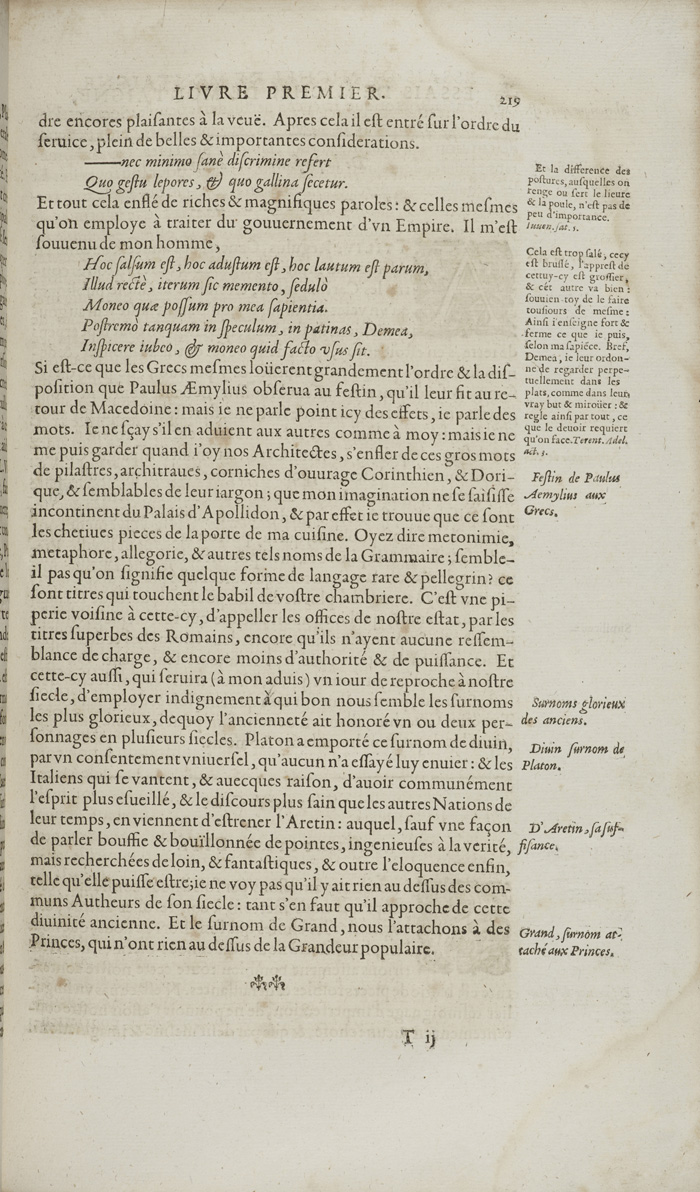 LIVRE PREMIER.
219
dre encores plaisantes à la veuë. Apres cela il est entré sur l'ordre du
seruice, plein de belles & importantes considerations.
——nec minimo sanè discrimine refert
Quo gestu lepores, & quo gallina secetur.
Et tout cela enflé de riches & magnifiques paroles: & celles mesmes
qu'on employe à traiter du gouuernement d'vn Empire. Il m'est
souuenu de mon homme,
Hoc salsum est, hoc adustum est, hoc lautum est parum,
Illud rectè, iterum sic memento, sedulò
Moneo quæ possum pro mea sapientia.
Postremò tanquam in speculum, in patinas, Demea,
Inspicere iubeo, & moneo quid facto vsus sit.
Si est-ce que les Grecs mesmes loüerent grandement l'ordre & la dis-
position que Paulus Æmylius obserua au festin, qu'il leur fit au re-
tour de Macedoine: mais ie ne parle point icy des effets, ie parle des
mots. Ie ne sçay s'il en aduient aux autres comme à moy: mais ie ne
me puis garder quand i'oy nos Architectes, s'enfler de ces gros mots
de pilastres, architraues, corniches d'ouurage Corinthien, & Dori-
que, & semblables de leur iargon; que mon imagination ne se saisisse
incontinent du Palais d'Apollidon, & par effet ie trouue que ce sont
les chetiues pieces de la porte de ma cuisine. Oyez dire metonimie,
metaphore, allegorie, & autres tels noms de la Grammaire; semble-
il pas qu'on signifie quelque forme de langage rare & pellegrin? ce
sont titres qui touchent le babil de vostre chambriere. C'est vne pi-
perie voisine à cette-cy, d'appeller les offices de nostre estat, par les
titres superbes des Romains, encore qu'ils n'ayent aucune ressem-
blance de charge, & encore moins d'authorité & de puissance. Et
cette-cy aussi, qui seruira (à mon aduis) vn iour de reproche à nostre
siecle, d'employer indignement à qui bon nous semble les surnoms
les plus glorieux, dequoy l'ancienneté ait honoré vn ou deux per-
sonnages en plusieurs siecles. Platon a emporté ce surnom de diuin,
par vn consentement vniuersel, qu'aucun n'a essayé luy enuier: & les
Italiens qui se vantent, & auecques raison, d'auoir communément
l'esprit plus esueillé, & le discours plus sain que les autres Nations de
leur temps, en viennent d'estrener l'Aretin: auquel, sauf vne façon
de parler bouffie & boüillonnée de pointes, ingenieuses à la verité,
mais recherchées de loin, & fantastiques, & outre l'eloquence enfin,
telle qu'elle puisse estre; ie ne voy pas qu'il y ait rien au dessus des com-
muns Autheurs de son siecle: tant s'en faut qu'il approche de cette
diuinité ancienne. Et le surnom de Grand, nous l'attachons à des
Princes, qui n'ont rien au dessus de la Grandeur populaire.
T ij
Et la difference des
postures, ausquelles on
renge ou sert le lieure
& la poule, n'est pas de
peu d'importance.
Iuuen. sat. 5.
Cela est trop salé, cecy
est bruslé, l'apprest de
cettuy-cy est grossier,
& cét autre va bien:
souuien-toy de le faire
tousiours de mesme:
Ainsi i'enseigne fort &
ferme ce que ie puis,
selon ma sapiéce. Bref,
Demea, ie leur ordon-
ne de regarder perpe-
tuellement dans les
plats, comme dans leur
vray but & miroüer: &
regle ainsi par tout, ce
que le deuoir requiert
qu'on face. Terent. Adel.
act. 3.
Festin de Paulus
Aemylius aux
Grecs.
Surnoms glorieux
des anciens.
Diuin surnom de
Platon.
D'Aretin, sa suf-
fisance.
Grand, surnom at-
taché aux Princes.